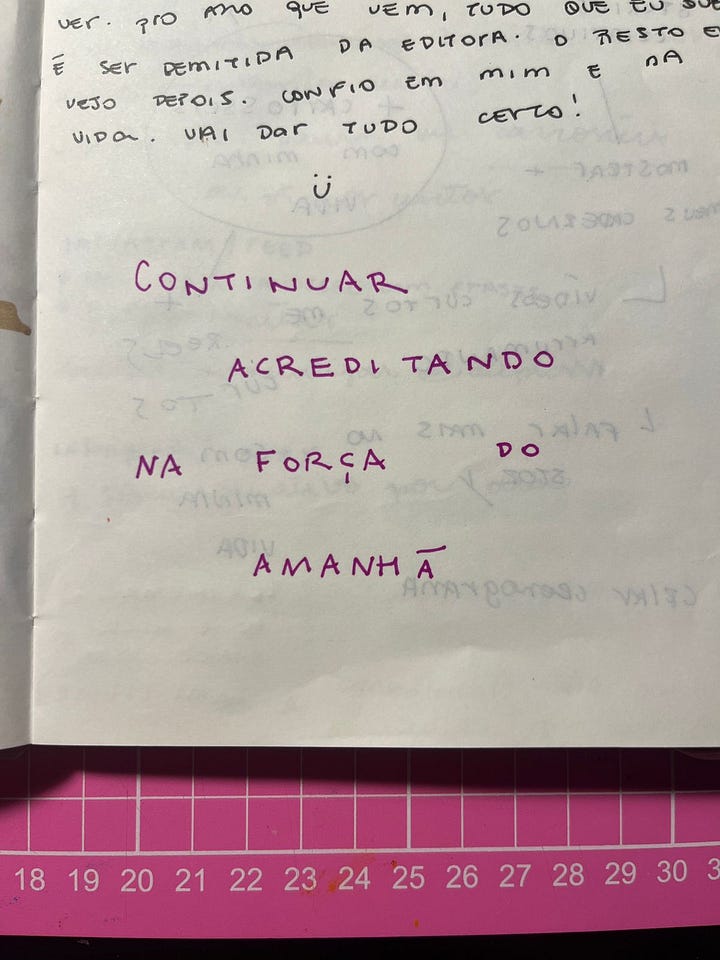 VER. PRO ANO QUE VEM, TUDO QUE EU
É SER DEMITIDA DA EDITORA. O RESTO E
VEJO DEPOIS. CONFIO EM MIM E NA
VIDA. VAI DAR TUDO CERTO!
CONTINUAR
ACREDITANDO
NA FORÇA DO
AMANHÃ
18 19 20 21 22 23 24 25 26 27 28 29 30 3